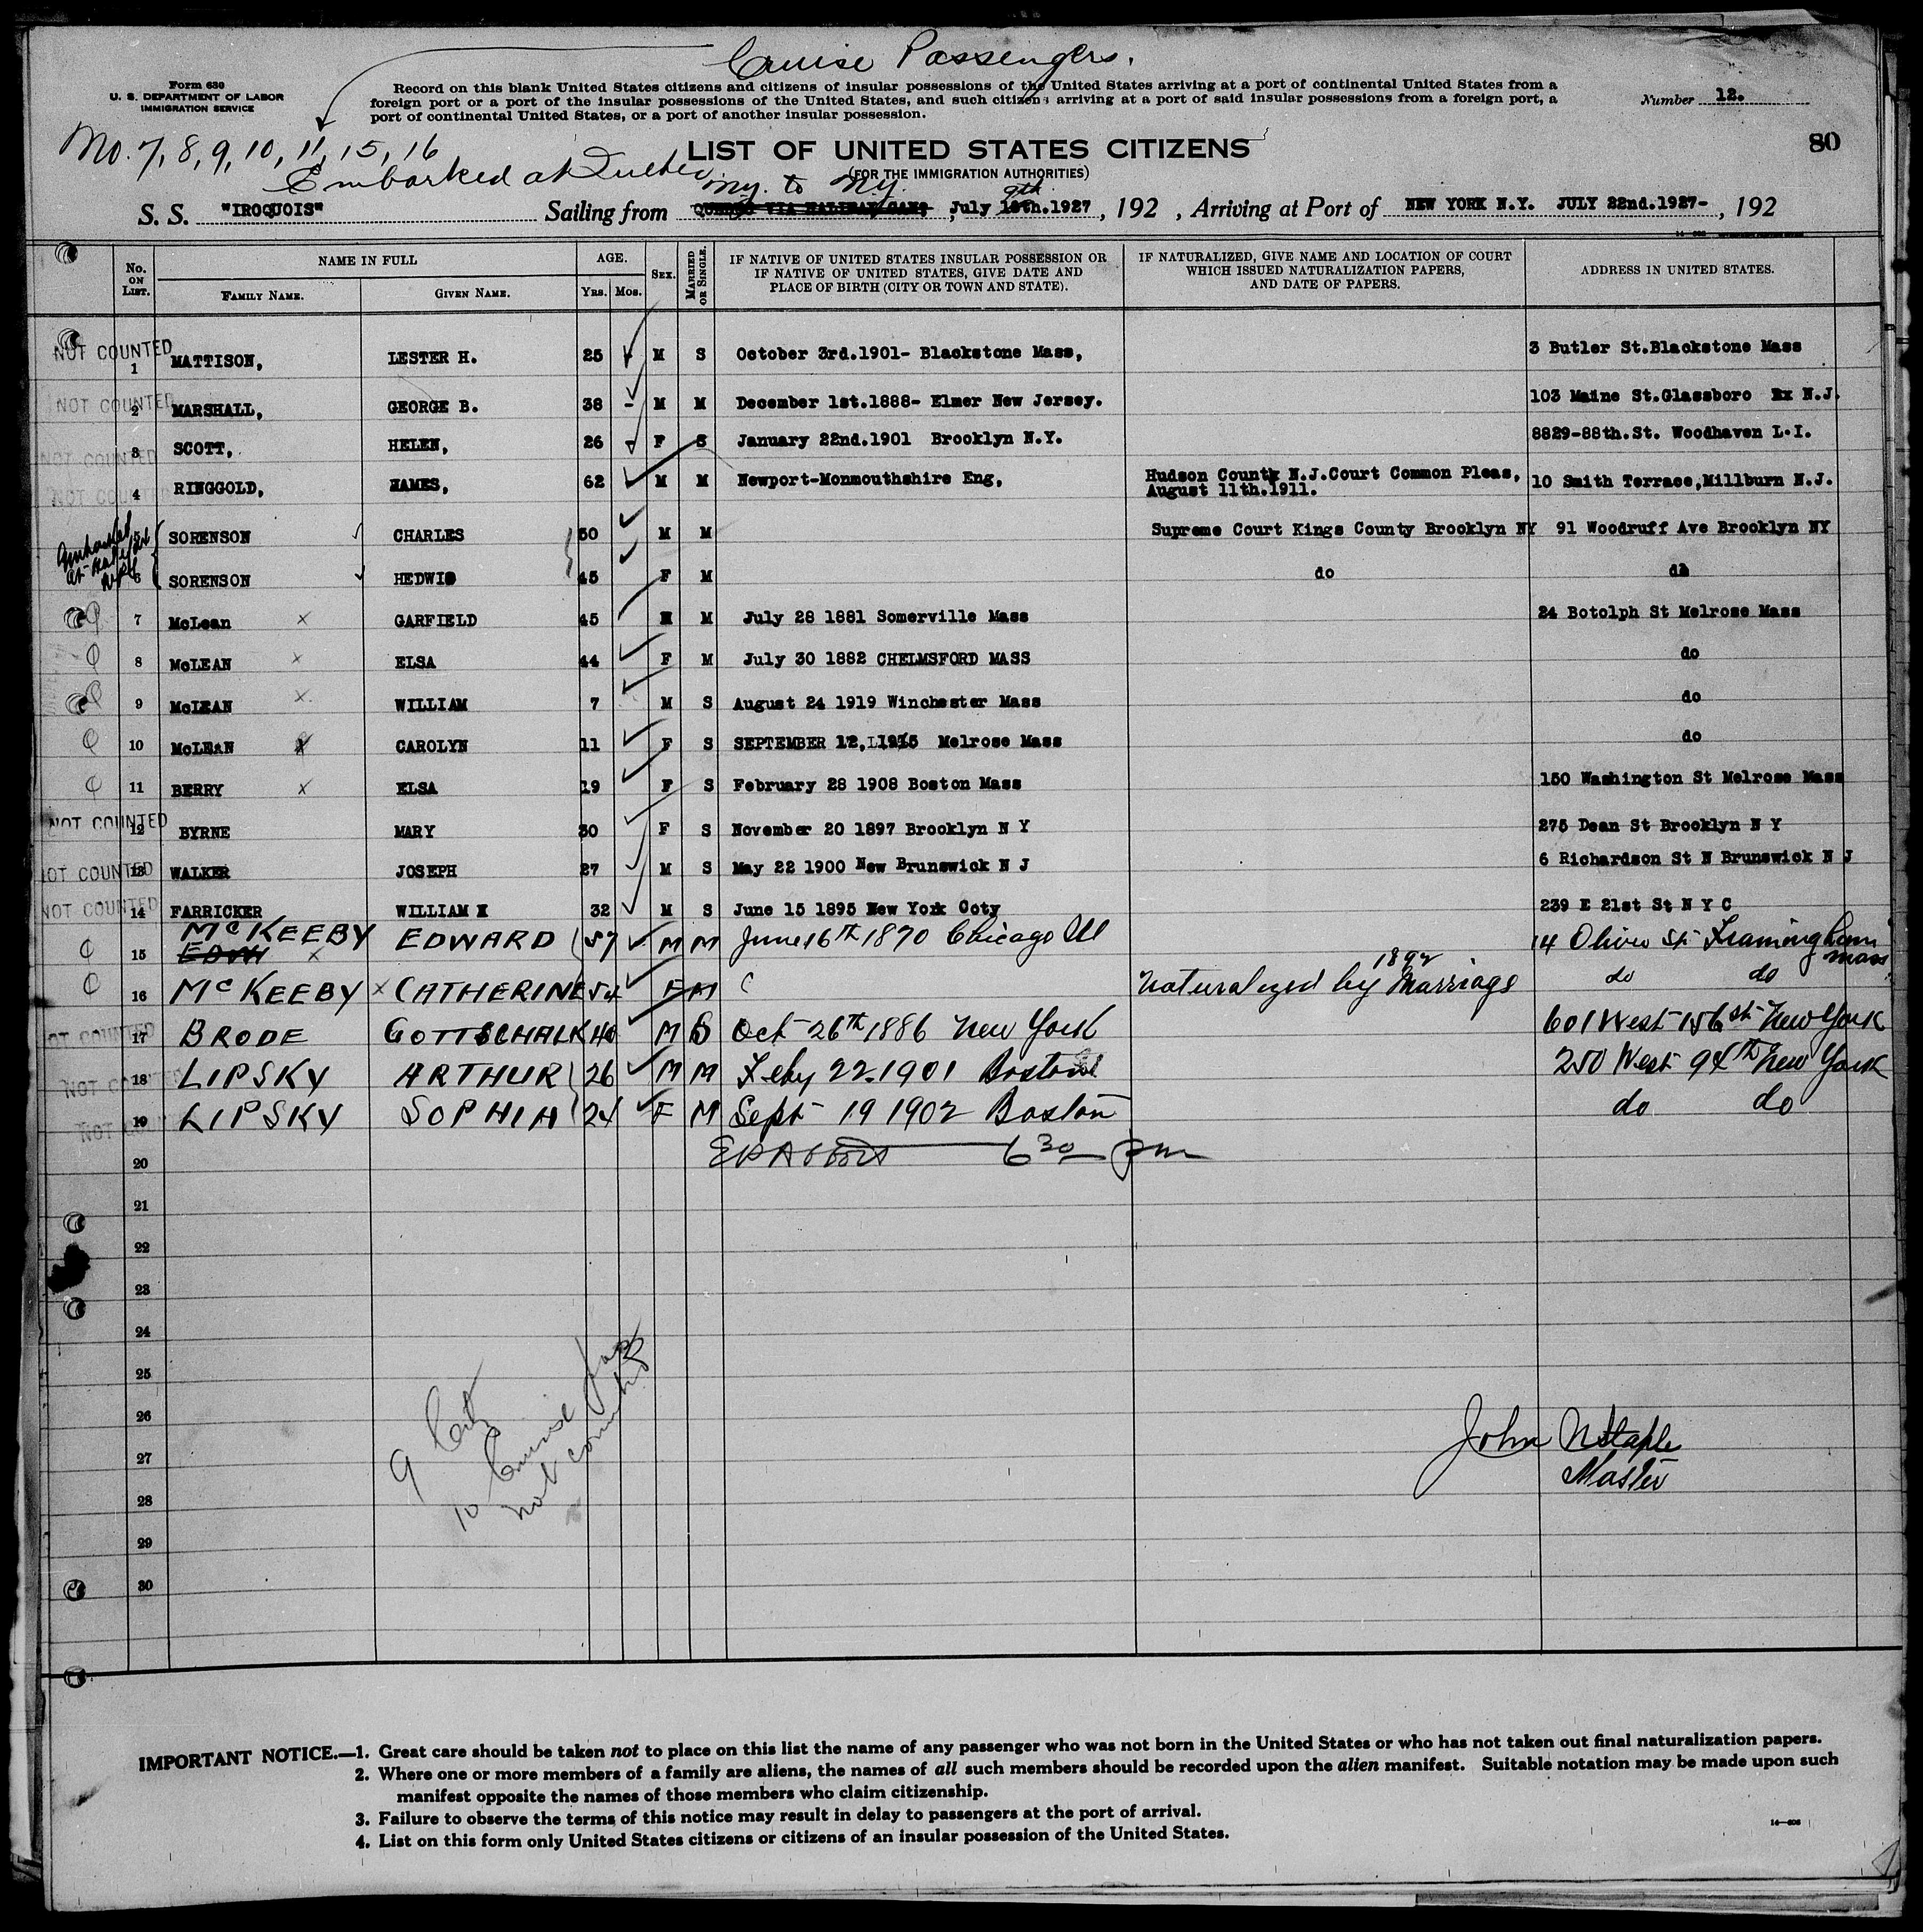 Cruise Passengers.
Form 630
U. S. DEPARTMENT OF LABOR
IMMIGRATION SERVICE
Record on this blank United States citizens and citizens of insular possessions of the United States arriving at a port of continental United States from a
foreign port or a port of the insular possessions of the United States, and such citizens arriving at a port of said insular possessions from a foreign port, a
port of continental United States, or a port of another insular possession.
Number 12.
80
No. 7, 8, 9, 10, 11, 15, 16
Embarked at Quebec
LIST OF UNITED STATES CITIZENS
(FOR THE IMMIGRATION AUTHORITIES)
N.Y. to N.Y. 9th
S. S. "IROQUOIS" Sailing from QUEBEC VIA HALIFAX, July 18th.1927, 192 , Arriving at Port of NEW YORK N.Y. JULY 22nd.1927-, 192
No. ON LIST. NAME IN FULL FAMILY NAME. GIVEN NAME. AGE. YRS. MOS. SEX. MARRIED OR SINGLE. IF NATIVE OF UNITED STATES INSULAR POSSESSION OR IF NATIVE OF UNITED STATES, GIVE DATE AND PLACE OF BIRTH (CITY OR TOWN AND STATE). IF NATURALIZED, GIVE NAME AND LOCATION OF COURT WHICH ISSUED NATURALIZATION PAPERS, AND DATE OF PAPERS. ADDRESS IN UNITED STATES.
NOT COUNTED 1 MATTISON, LESTER H. 25 M S October 3rd.1901- Blackstone Mass, 3 Butler St.Blackstone Mass
NOT COUNTED 2 MARSHALL, GEORGE B. 38 - M M December 1st.1888- Elmer New Jersey. 103 Maine St.Glassboro N.J.
NOT COUNTED 3 SCOTT, HELEN, 26 F S January 22nd.1901 Brooklyn N.Y. 8829-88th.St. Woodhaven L.I.
NOT COUNTED 4 RINGGOLD, HAMES, 62 M M Newport-Monmouthshire Eng, Hudson County N.J.Court Common Pleas, August 11th.1911. 10 Smith Terrace,Millburn N.J.
Embarked at Halifax
5 SORENSON CHARLES 50 M M Supreme Court Kings County Brooklyn NY 91 Woodruff Ave Brooklyn NY
6 SORENSON HEDWIG 45 F M do do
7 McLean x GARFIELD 45 M M July 28 1881 Somerville Mass 24 Botolph St Melrose Mass
8 McLEAN x ELSA 44 F M July 30 1882 CHELMSFORD MASS do
9 McLEAN x WILLIAM 7 M S August 24 1919 Winchester Mass do
10 McLEAN x CAROLYN 11 F S SEPTEMBER 12, 1915 Melrose Mass do
11 BERRY x ELSA 19 F S February 28 1908 Boston Mass 150 Washington St Melrose Mass
NOT COUNTED 12 BYRNE MARY 30 F S November 20 1897 Brooklyn N Y 275 Dean St Brooklyn N Y
NOT COUNTED 13 WALKER JOSEPH 27 M S May 22 1900 New Brunswick N J 6 Richardson St N Brunswick N J
NOT COUNTED 14 FARRICKER WILLIAM H 32 M S June 15 1895 New York Coty 239 E 21st St N Y C
15 EDW McKEEBY x EDWARD 57 M M June 16th 1870 Chicago Ill 14 Olive St Framingham Mass
16 McKEEBY x CATHERINE 54 F M Naturalized by Marriage 1892 do do
NOT COUNTED 17 BRODE GOTTSCHALK 40 M S Oct 26th 1886 New York 601 West 156 st New York
NOT COUNTED 18 LIPSKY ARTHUR 26 M M Feby 22.1901 Boston 250 West 94th New York
NOT COUNTED 19 LIPSKY SOPHIA 24 F M Sept 19 1902 Boston do do
20 6 30 pm
21
22
23
24
25
26
27
28
29
30
9 Cit
10 Cruise pass
not counted
John N Staple
Master
IMPORTANT NOTICE.—1. Great care should be taken not to place on this list the name of any passenger who was not born in the United States or who has not taken out final naturalization papers.
2. Where one or more members of a family are aliens, the names of all such members should be recorded upon the alien manifest. Suitable notation may be made upon such
manifest opposite the names of those members who claim citizenship.
3. Failure to observe the terms of this notice may result in delay to passengers at the port of arrival.
4. List on this form only United States citizens or citizens of an insular possession of the United States.